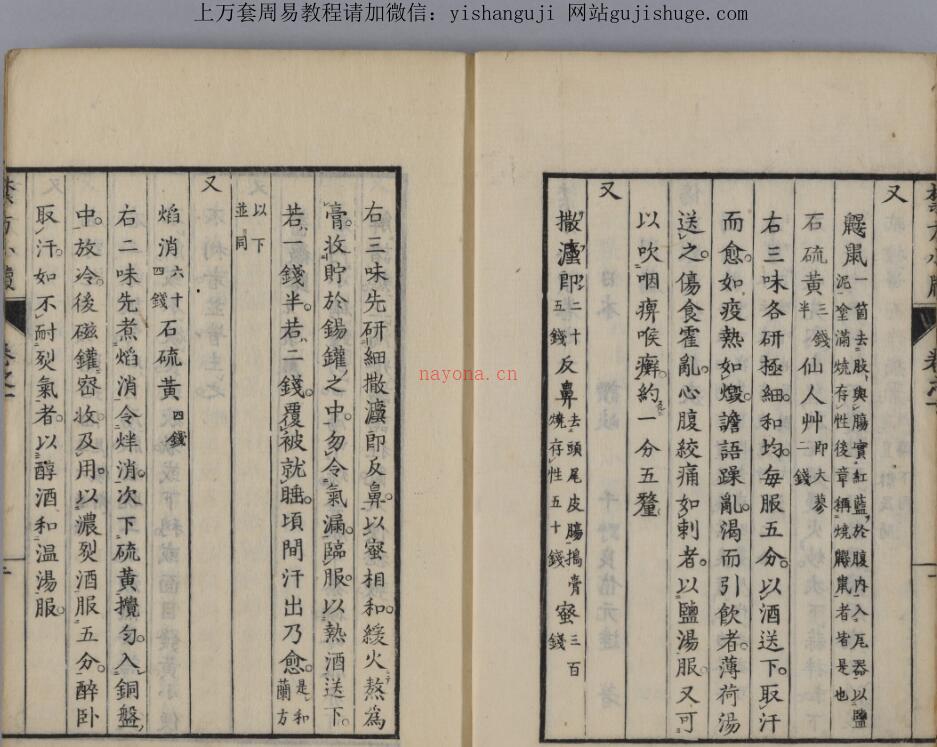 上万套周易教程请加微信：yishanguji 网站gujishuge.com
又
鼹鼠一箇去肢與腸實紅藍於腹内入瓦器以鹽
泥塗滿燒存性後章稱燒鼹鼠者皆是也
石硫黄三錢半仙人艸即大蓼二錢
右三味各研極細和均每服五分以酒送下取汗
而愈如疫熱如燬譫語躁亂渴而引飲者薄荷湯
送之傷食霍亂心腹絞痛如刺者以鹽湯服又可
以吹咽痹喉癬約一分五釐
又
撒瀘即二十五錢反鼻去頭尾皮腸搗膏燒存性五十錢蜜三百錢
右三味先研細撒瀘即反鼻以蜜相和緩火熬為
膏收貯於錫罐之中勿令氣漏臨服以熱酒送下
若一錢半若二錢覆被就睡頃間汗出乃愈是和蘭方
以下並同
又
焰消六十四錢石硫黄四錢
右二味先煮焰消令烊消次下硫黄攪匀入銅盤
中放冷後磁罐密收及用以濃烈酒服五分醉卧
取汗如不耐裂氣者以醇酒和温湯服
nayona.cn